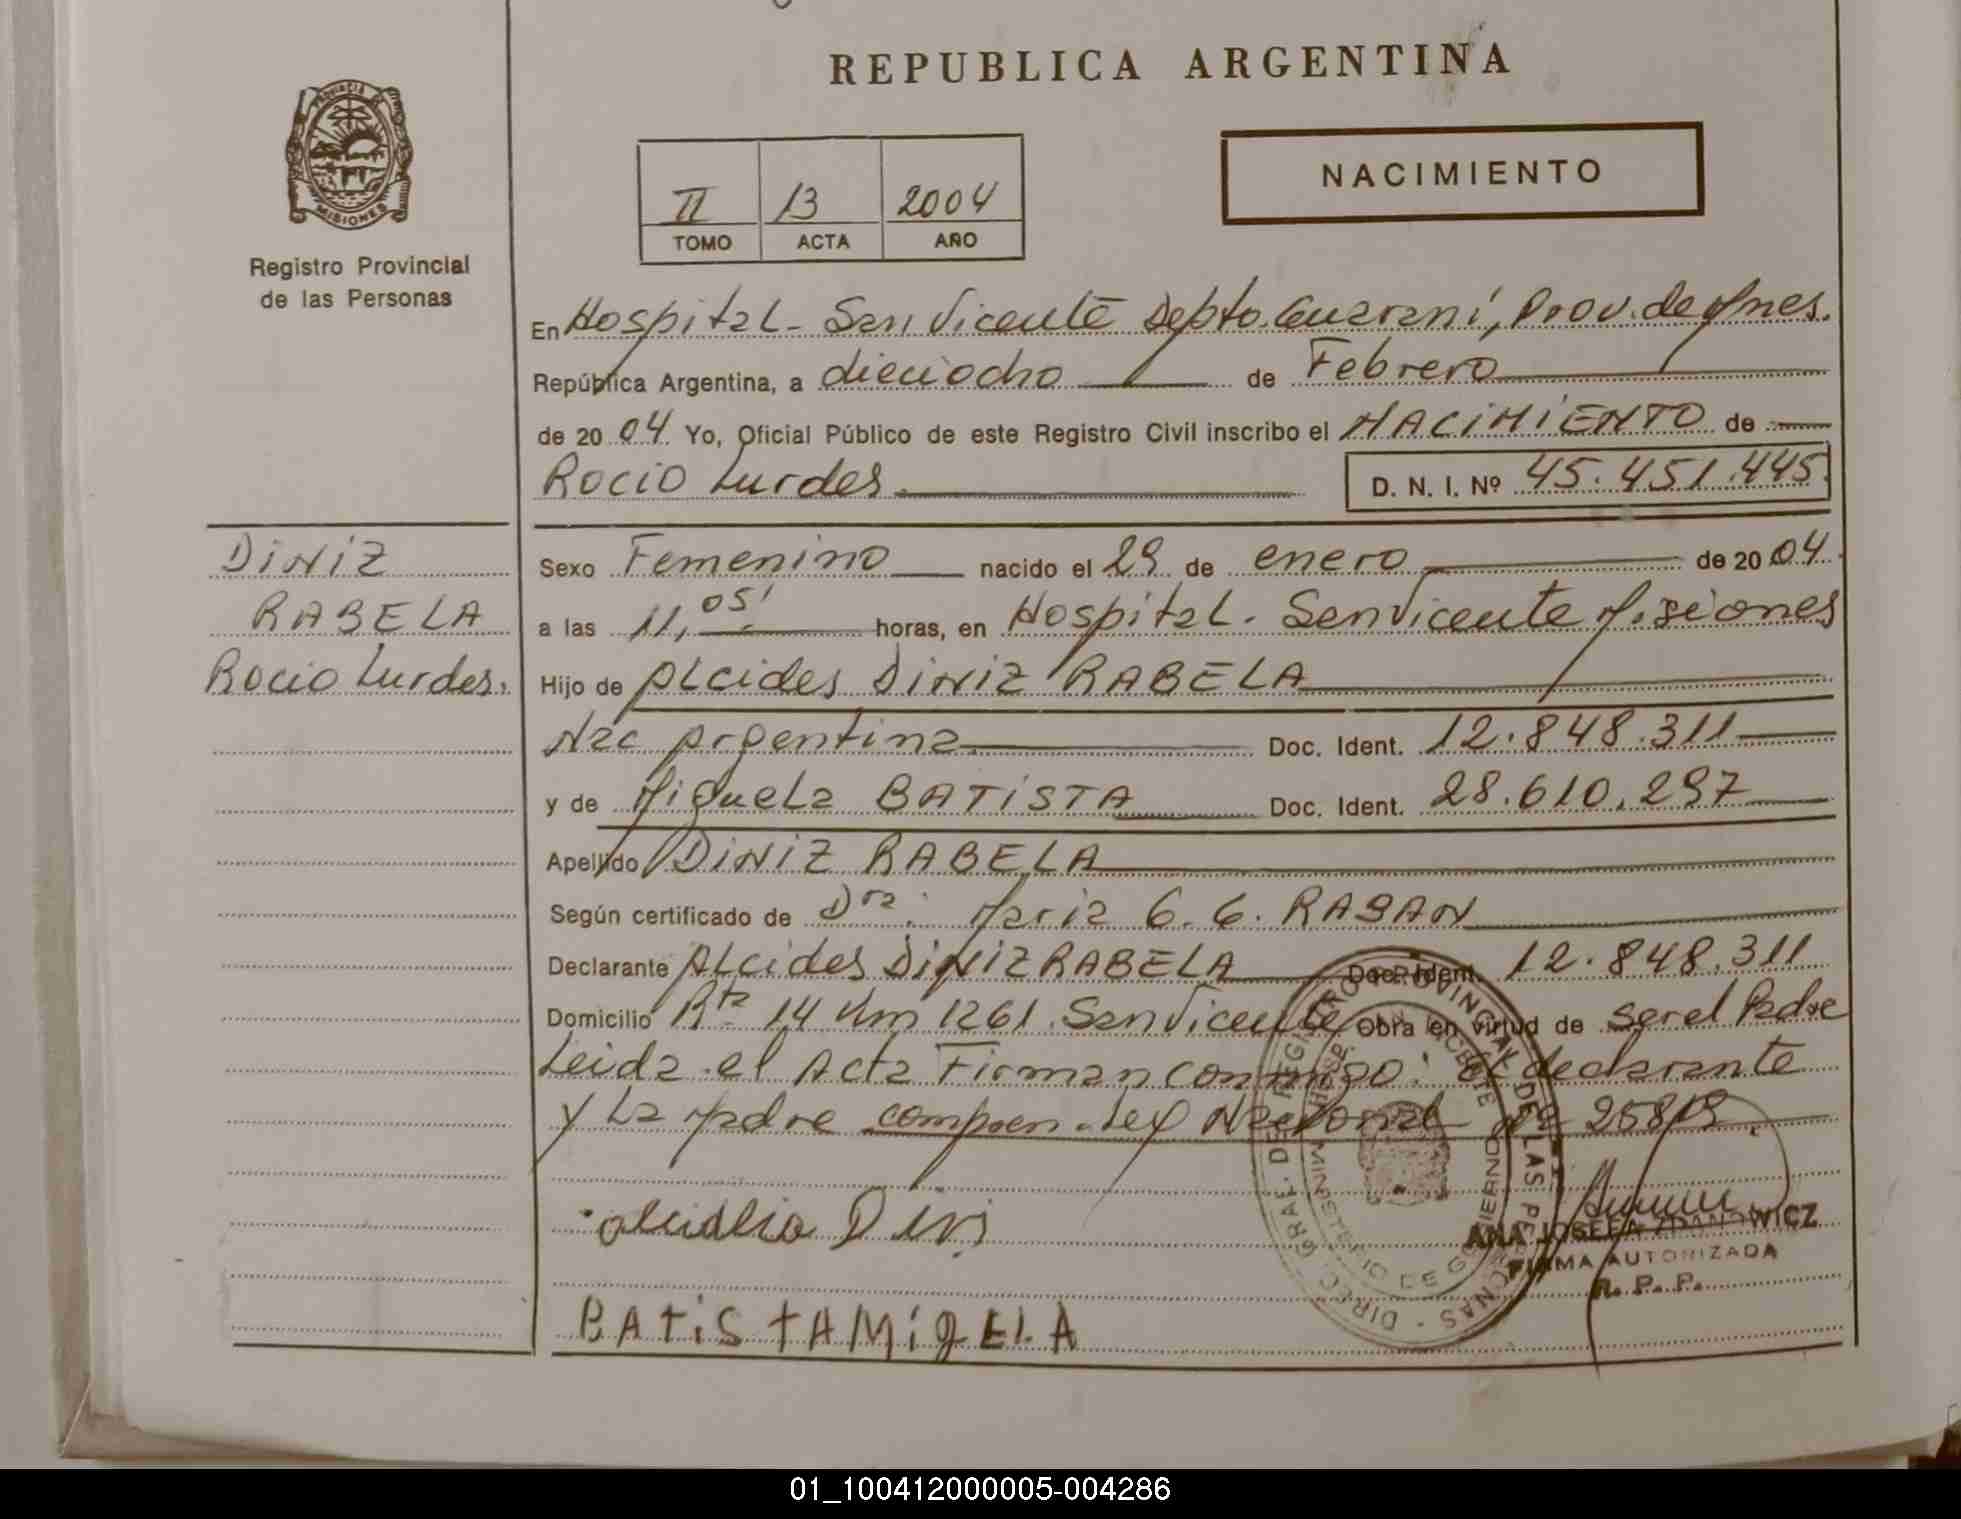 REPUBLICA ARGENTINA
PROVINCIA DE
MISIONES
Registro Provincial
de las Personas
II 13 2004
TOMO ACTA AÑO
NACIMIENTO
En Hospital - San Vicente Depto. Guarani, Prov. de Mnes.
República Argentina, a dieciocho de Febrero
de 2004. Yo, Oficial Público de este Registro Civil inscribo el NACIMIENTO de
Rocio Lurdes. D. N. I. Nº 45.451.445.
DINIZ
RABELA
Rocio Lurdes.
Sexo Femenino nacido el 29 de enero de 2004.
a las 11,05' horas, en Hospital. San Vicente Misiones
Hijo de Alcides DINIZ RABELA
Nac Argentina Doc. Ident. 12.848.311
y de Miguela BATISTA Doc. Ident. 28.610.297
Apellido DINIZ RABELA
Según certificado de Dra. Maria G. G. RABAN
Declarante Alcides DINIZ RABELA Doc. Ident. 12.848.311
Domicilio Rta 14 Km 1261. San Vicente Obra en virtud de ser el Padre
Leida el Acta Firman conmigo: El declarante
y La Madre Ley Nacional 25819.
BATiSTA MiGELA
DIREC. GRAL. DEL REGISTRO PROVINCIAL DE LAS PERSONAS
MINISTERIO DE GOBIERNO
HOSP. SAN VICENTE
ANA JOSEFA ZDANOWICZ
FIRMA AUTORIZADA
R. P. P.
01_100412000005-004286